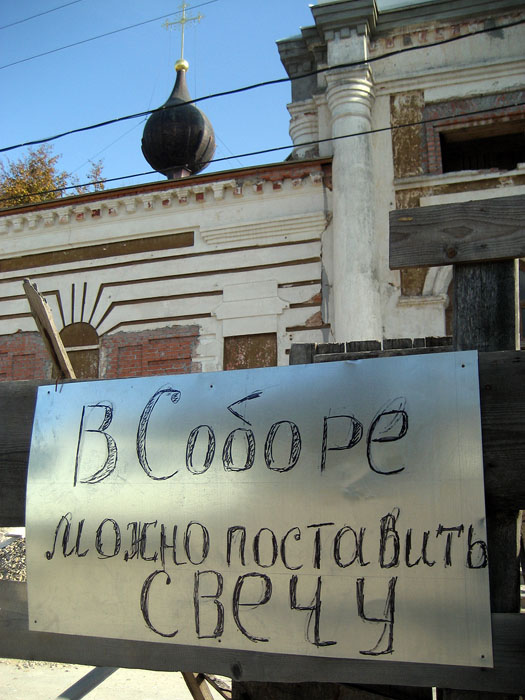 В Соборе
можно поставить
свечу